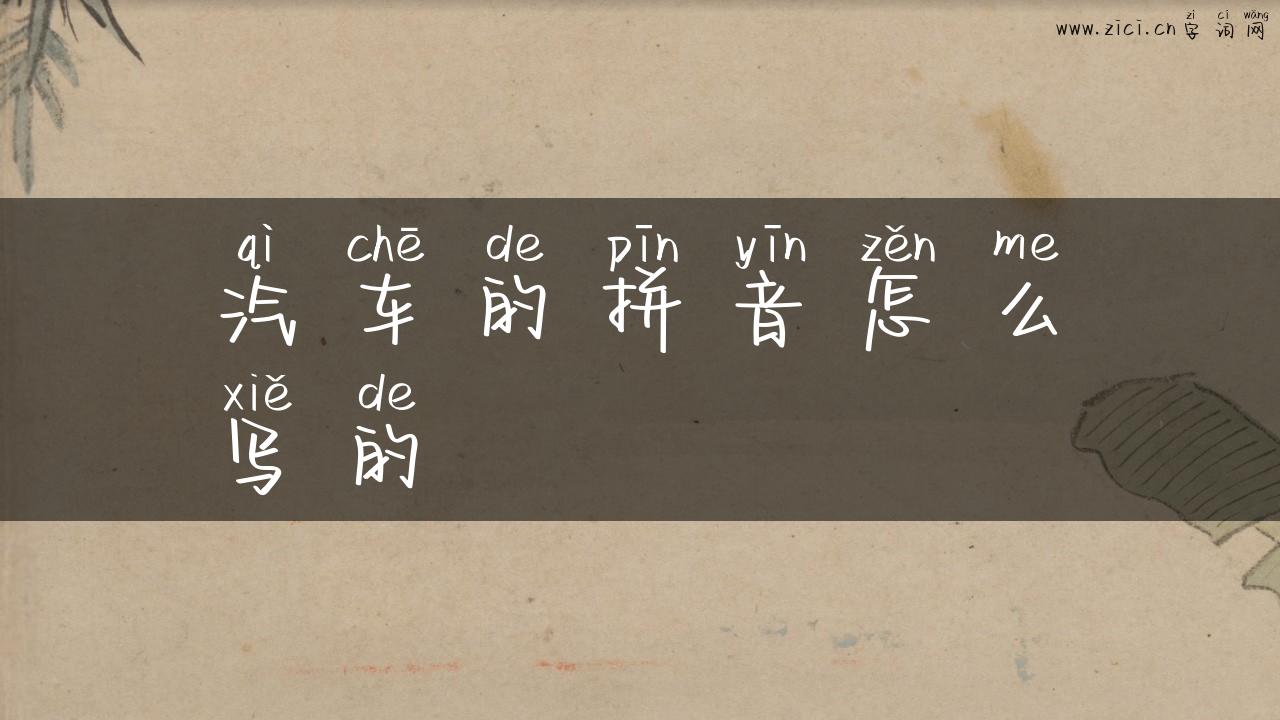 zì cí wǎng
www.zici.cn 字 词 网
qì chē de pīn yīn zěn me
汽 车 的 拼 音 怎 么
xiě de
写 的